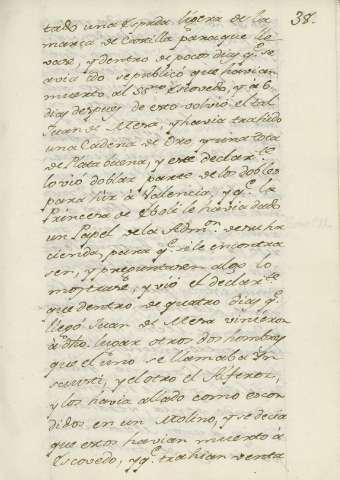 38.
tado una Espada ligera de la
marca de Castilla para que lle
vase, y dentro de pocos dias q.e se
avia ido se publicó que havian
muerto al SS.rio Escovedo, y à 6
dias despues de esto volvió el tal
Juan de Mesa, y havia trahido
una Cadena de Oro, y una
de Plata buena, y este declar.te
lo vió doblar parte de los dobles
para hir à Valencia, y q.e la
Princesa de Eboli le havia dado
un Papel de la Adm.on de su ha
cienda, para q.e si le encontra
sen, y preguntasen algo lo
mostrase, y vió el declar.te
que dentro de quatro dias q.e
llegó Juan de Mesa vinieron
à dho. lugar otros dos hombres
que el uno se llamaba Yn
sausti, y el otro el Alferez,
y los havia allado como escon
didos en un Molino, y se decia
que estos havian muerto à
Escovedo, y q.e trahian